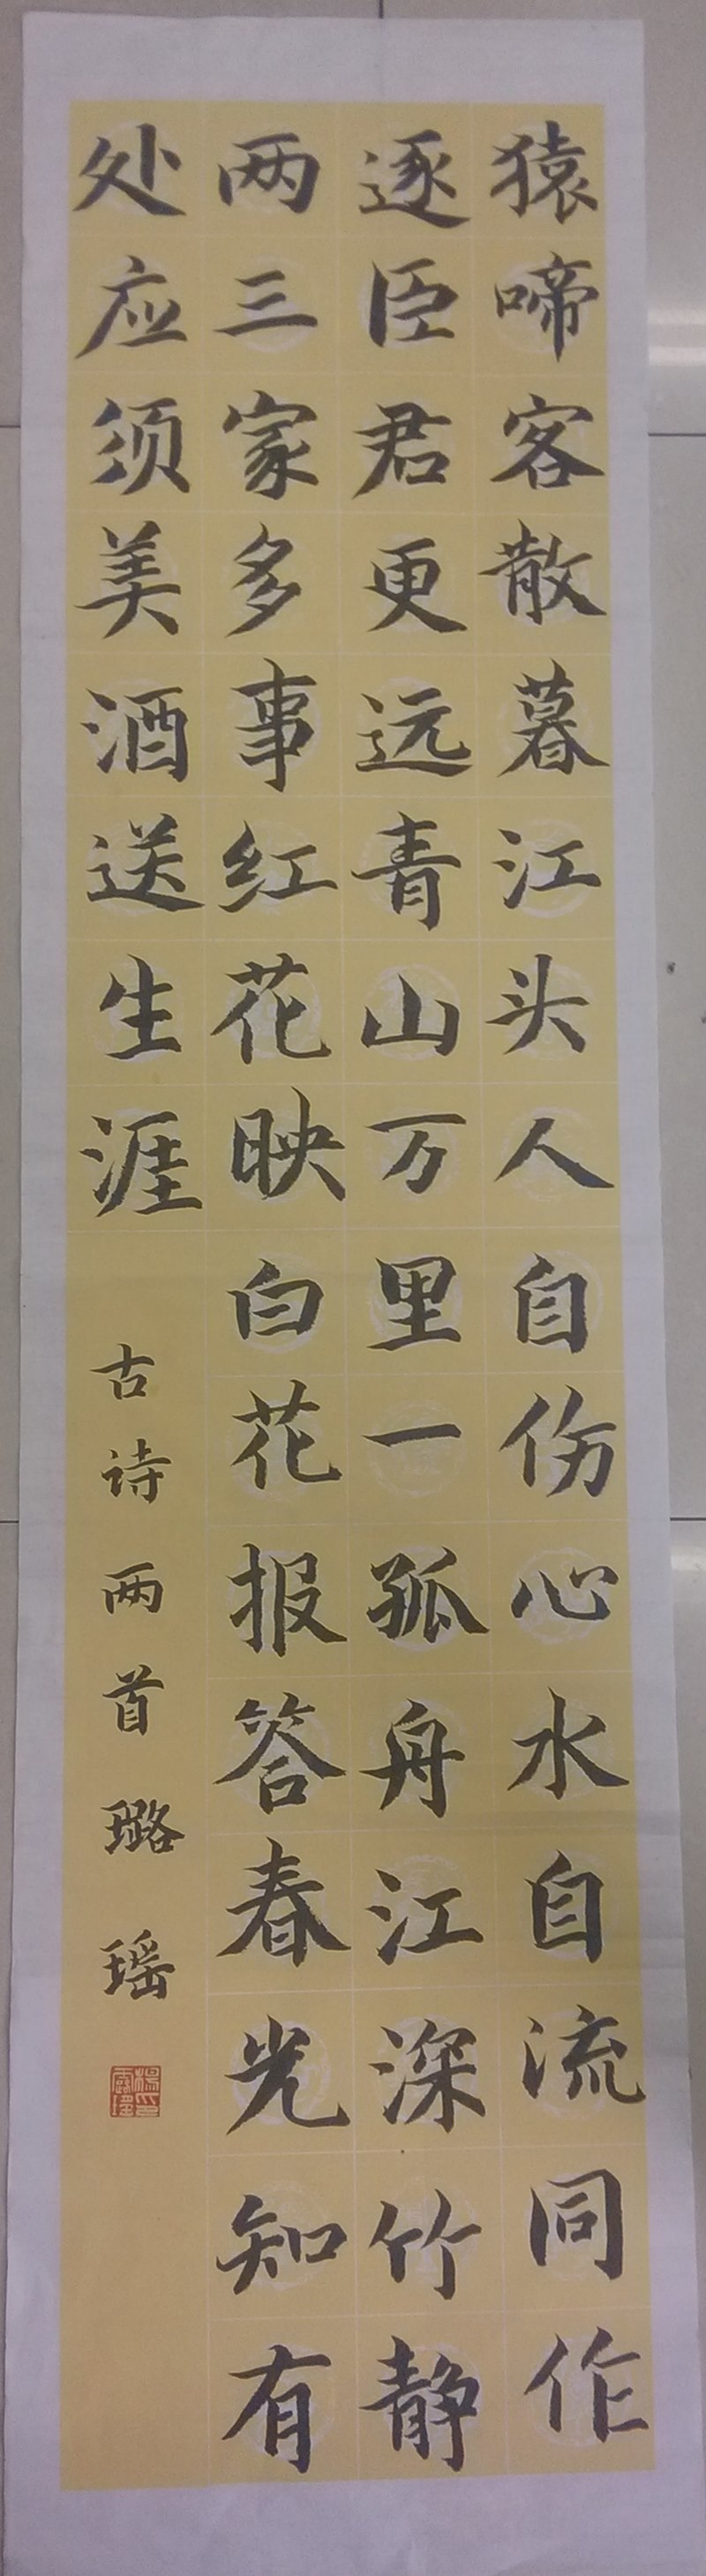 猿啼客散暮江头人自伤心水自流同作
逐臣君更远青山万里一孤舟江深竹静
两三家多事红花映白花报答春光知有
处应须美酒送生涯
古诗两首璐瑶